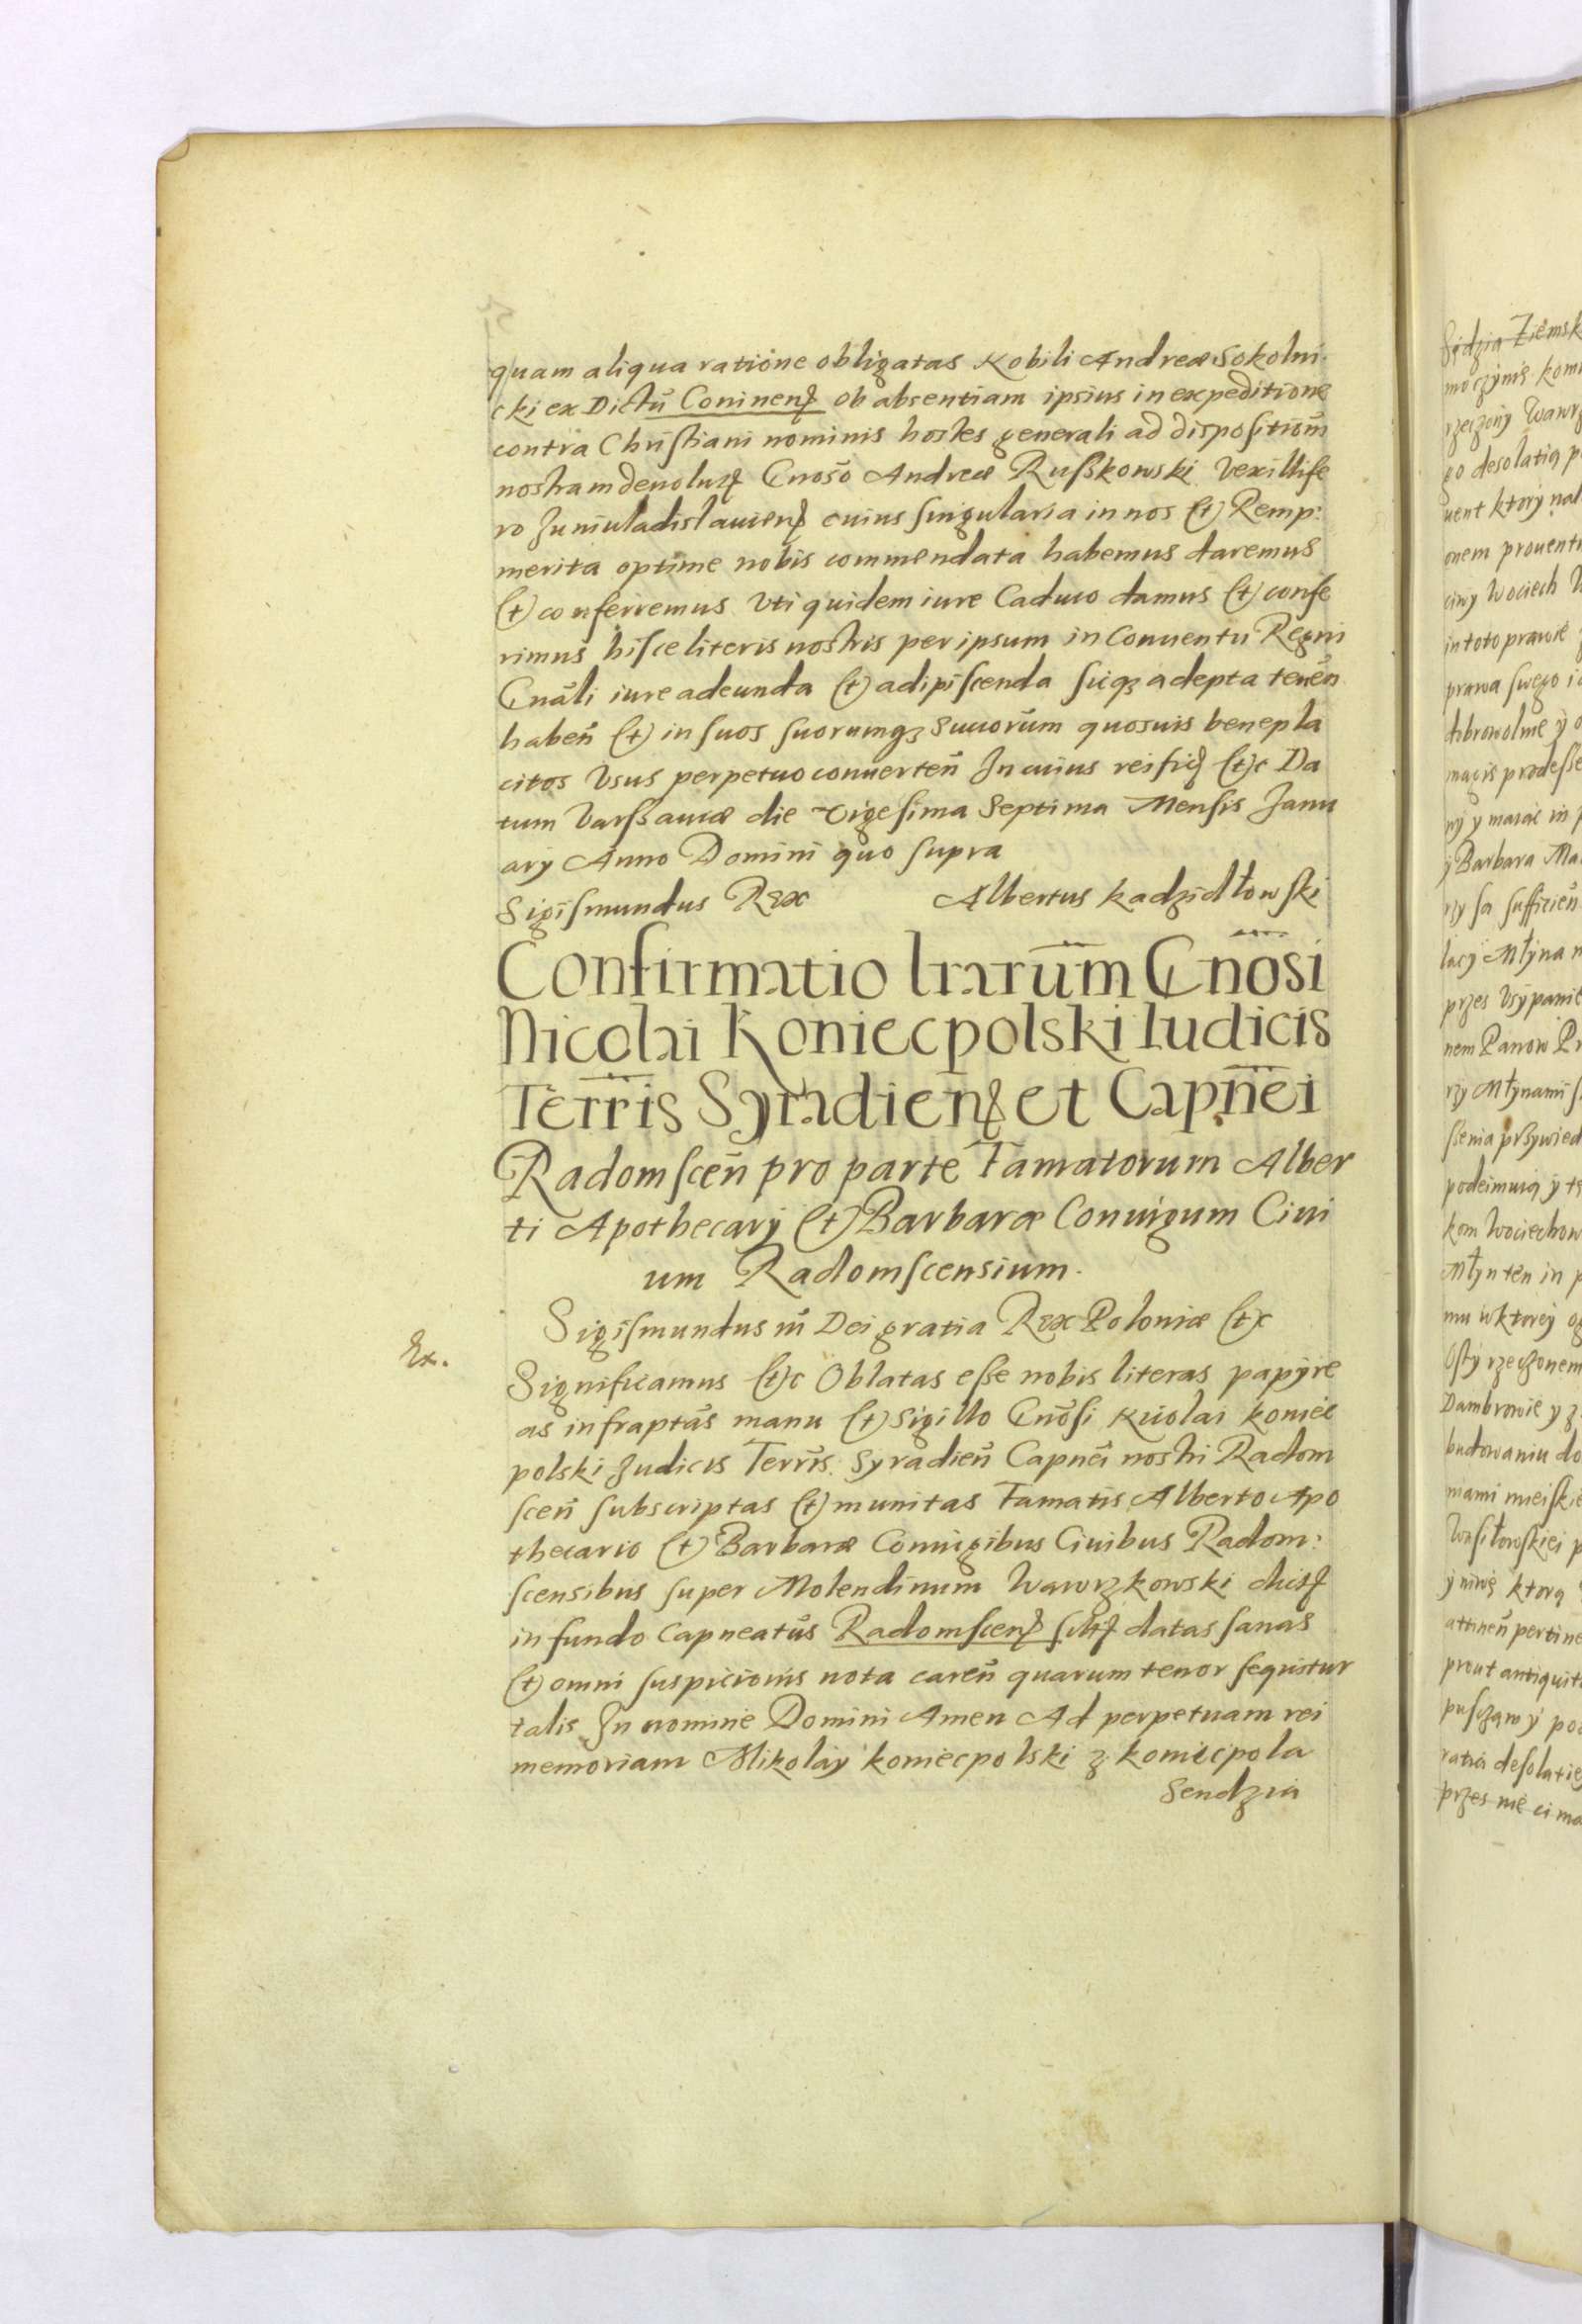 quam aliqua ratione obligatas Nobili Andreæ Sokolni
cki ex Dictū Coninenʒ ob absentiam ipsius in expeditione
contra Christiani nominis hostes generali ad dispositiōm
nostram deuolutʒ Gnoso Andreæ Rusßkowski Vexillife
ro Juniuladislauienʒ cuius singularia in nos et Remp:
merita optime nobis commendata habemus daremus
et conferremus Vti quidem iure Caduco damus et confe
rimus hisce literis nostris per ipsum in Conuentu Regni
Gnāli iure adeunda et adipiscenda sicqʒ adepta tenēn
habeñ et in suos suorumqʒ Succorūm quosuis benepla
citos Vsus perpetuo conuerteñ In cuius rei fidʒ etc Da
tum Varsßauiæ die Vigesima Septima Mensis Janu
arÿ Anno Domini quo supra
Sigismundus Rex Albertus Kadzidłowski
Confirmatio lrarum̄ Gnōsi
Nicolai Koniecpolski Iudicis
Terrīs Syradienʒ et Capnēi
Radomsceñ pro parte Famatorum Alber
ti Apothecarÿ et Barbaræ Coniugum Ciui
um Radomscensium.
Ex.
Sigismundus iii Dei gratia Rex Poloniæ etc
Significamus etc Oblatas esse nobis literas papÿre
as infraptās manu et Sigillo Gnōsi Nicolai Koniec
polski Judicis Terrīs Syradieñ Capnēi nostri Radom
sceñ subscriptas et munitas Famatis Alberto Apo
thecario et Barbaræ Coniugibus Ciuibus Radom:
scensibus super Molendinum Wawrzkowski dictʒ
in fundo Capneatūs Radomscenʒ sitʒ datas sanas
et omni suspicionis nota careñ quarum tenor sequitur
talis In nomine Domini Amen Ad perpetuam rei
memoriam Mikolaÿ Koniecpolski z Koniecpola
Sendzia
Sędzia Ziemsk
rzeczony Wawrz
go desolatią p
uent ktorÿ nal
onem prouentu
ciwy Wociech W
in toto prawie
prawa swego
dobrowolnie ÿ
magis prodesse
nÿ ÿ maiąc in p
ÿ Barbara Ma
sa sufficieñ
lacÿ Młÿna n
przes Vsÿpanie
nem Panow
rzÿ Młÿnami
podeimuią ÿ
kom Wociechow
Młÿn ten in p
mu w ktorēÿ og
Osty rzeczonem
Dambrowie ÿ z
budowaniu do
mami mieiskie
Wąsiłowskiei p
ÿ niwę ktorą
attineñ pertine
prout antiquit
ratia desolatie
przes nie ci ma